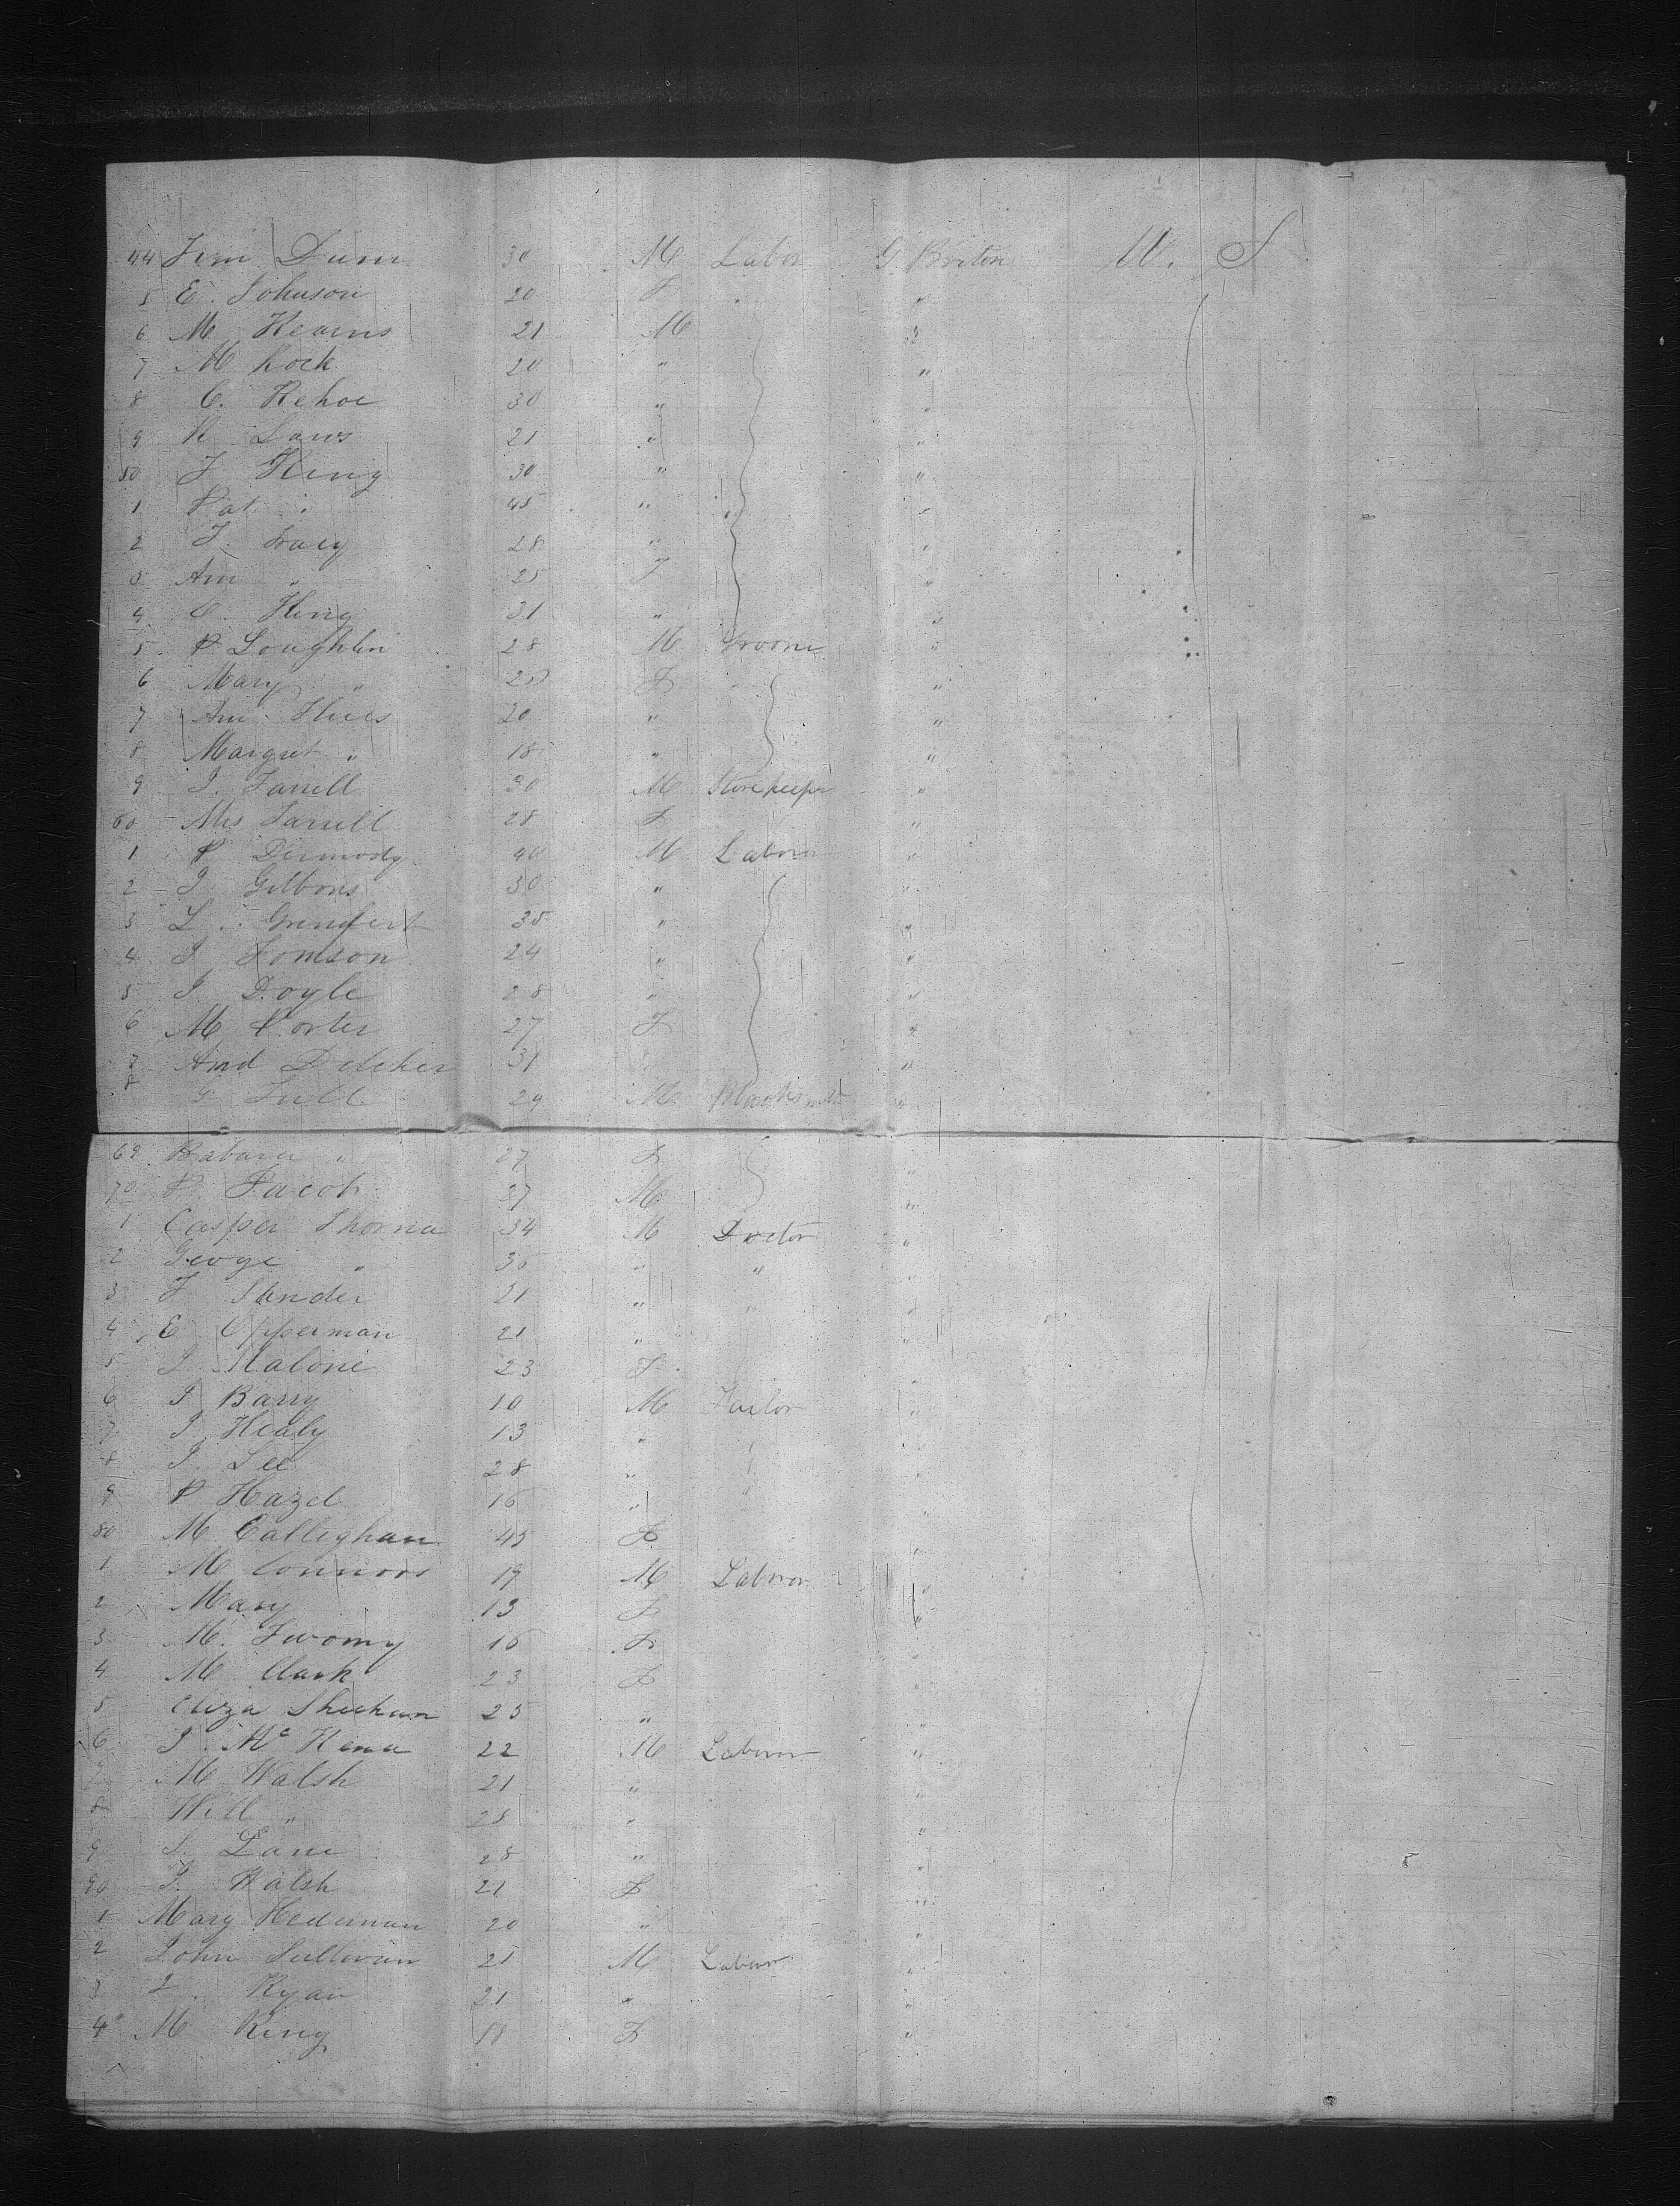 44 Jim Dunn 30 M Labor G. Briton U. S
5 E. Johnson 20 F "
6 M Kearns 21 M "
7 M Rock 20 " "
8 C. Kehoe 30 " "
9 R Laws 21 " "
50 J King 30 " "
1 Pat " 45 " "
2 J. Tracy 28 " "
3 Ann " 25 F "
4 C. King 31 " "
5 P Loughlin 28 M Groom "
6 Mary " F "
7 Ann 20 " "
8 Margret " 18 " "
9 J. Farrell 30 M Storekeeper "
60 Mrs Farrell 28 F "
1 P Dermody 40 M Labour "
2 J Gibbons 30 " "
3 L. 35 " "
4 J Tomson 24 " "
5 J Doyle 28 " "
6 M Porter 27 F "
7 And 31 "
8 G. 29 M Blacksmith "
69 Babara " 27 F "
70 P. Jacob 27 M "
1 Casper Thoma 34 M Doctor "
2 Geoge " 36 " " "
3 Sander 21 " " "
4 E Opperman 21 " "
5 J Malone 23 F
6 J Barry 10 M "
7 J Healy 13 " "
8 J. Lee 28 " "
9 P Hazel 16 " "
80 M Calleghan 45 F "
1 M Connors 19 M Labour "
2 Mary 13 F "
3 M. Twomy 16 F "
4 M Clark 23 F "
5 Eliza Sheehan 25 " "
6 J. McKena 22 M Labour "
7 M Walsh 21 " "
8 Will " 28 " "
9 Lane 28 " "
90 J. Walsh 21 F "
1 Mary Hederman 20 " "
2 John Sullivan 21 M Labour "
3 Ryan 21 " "
4 M King 18 F "